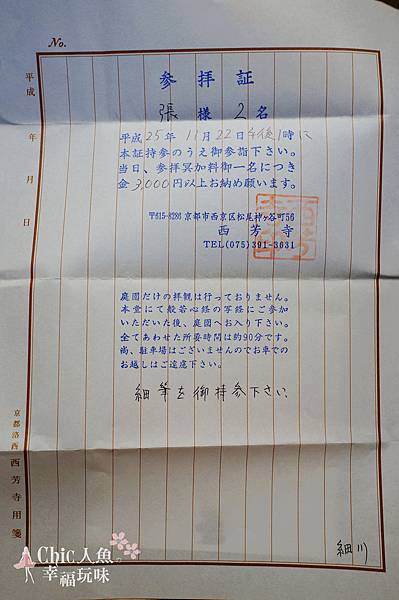 No.
平成
年
月
日
参拝証
張 様 2名
平成25年11月22日午後1時に
本証持参のうえ御参詣下さい。
当日、参拝冥加料御一名につき
金3,000円以上お納め願います。
〒615-8286 京都市西京区松尾神ヶ谷町56
西芳寺
TEL(075)391-3631
庭園だけの拝観は行っておりません。
本堂にて般若心経の写経にご参加
いただいた後、庭園へお入り下さい。
全てあわせた所要時間は約90分です。
尚、駐車場はございませんのでお車での
お越しはご遠慮下さい。
細筆を御持参下さい
京都洛西 西芳寺用箋
細川
Chic人魚
幸福玩味